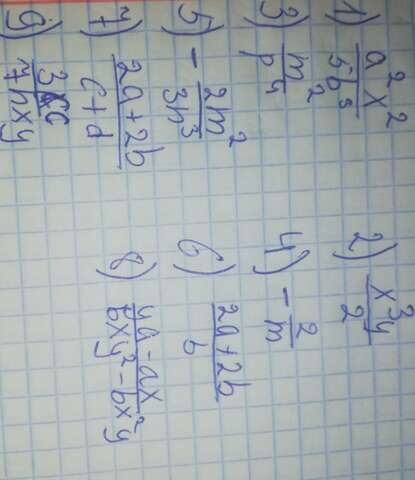 1) a²x²/5b⁵ 2) x³y/2
3) m²/p⁴ 4) -2/m
5) -2m²/3n³ 6) 2a+2b/b
7) 2a+2b/c+d 8) ya-ax/bxy²-bx²y
9) 3c/7nxy